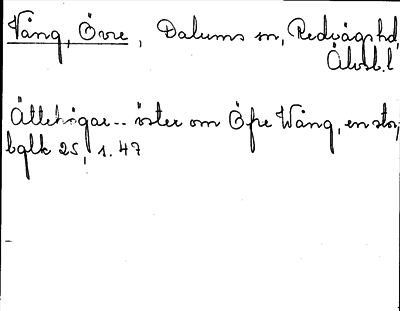 Vång, Övre, Dalums sn, Redvägs hd,
Älvsb. l
Ättehögar -- öster om Öfre Wång, en stor,
bqlk 25, 1. 47